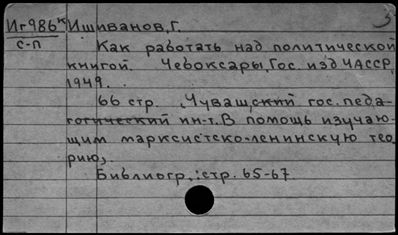 Иг986к Ишиванов, Г.
с-п
Как работать над политической
книгой. Чебоксары, Гос. изд ЧАССР,
1949.
66 стр. (Чуваш,ский гос. педа-
гогический ин-т. В помощь изучаю-
щим марксистско-ленинскую тео
рию).
Библиогр.: стр. 65-67